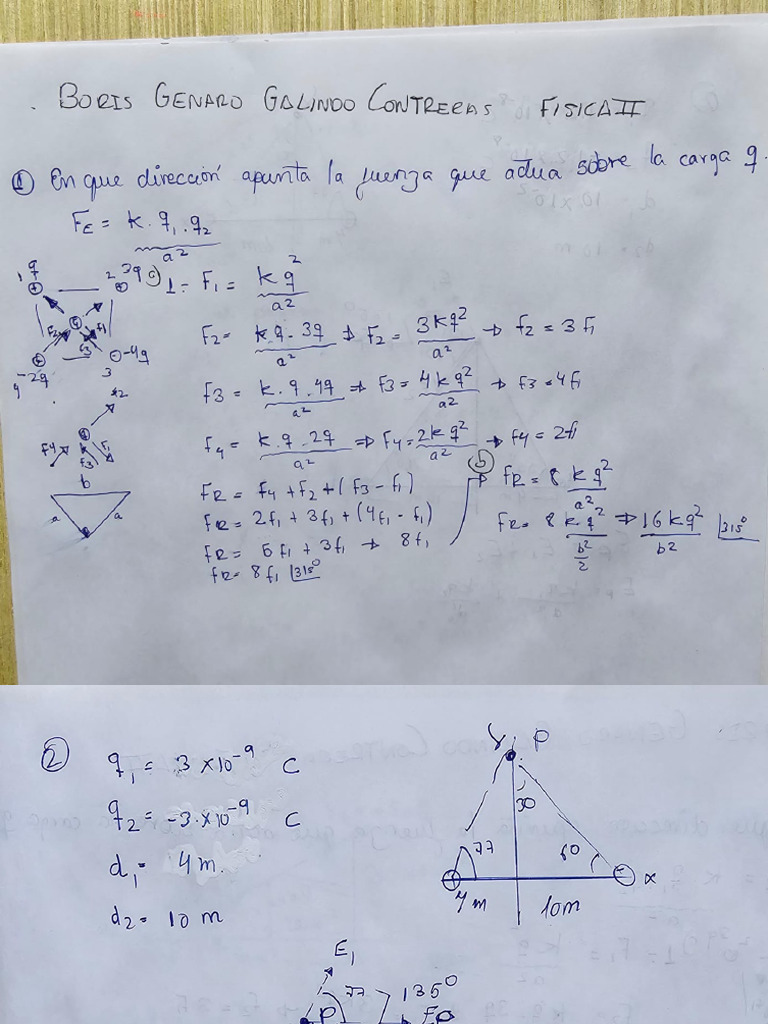 BORIS GENARO GALINDO CONTRERAS FISICA II
① En que dirección apunta la fuerza que actua sobre la carga q.
FE = k.q1.q2 / a²
1 q
2 3q
-4q
3
4 -2q
F2 F1
F3
F2
F4 F3 F1
b
a a
a) 1- F1 = kq² / a²
F2 = k.q.3q / a² ⇒ F2 = 3kq² / a² → f2 = 3f1
F3 = k.q.4q / a² ⇒ F3 = 4kq² / a² → f3 = 4f1
f4 = k.q.2q / a² ⇒ F4 = 2kq² / a² → f4 = 2f1
FR = f4 + F2 + (F3 - f1)
FR = 2f1 + 3f1 + (4f1 - f1)
fR = 5f1 + 3f1 → 8f1
fR = 8f1 |315°
b) fR = 8 kq² / a²
FR = 8 kq² / (b²/2) ⇒ 16kq² / b² |315°
②
q1 = 3×10⁻⁹ C
q2 = -3×10⁻⁹ C
d1 = 4 m.
d2 = 10 m
Y P
30
77 60
x
4m 10m
E1
77 135°
P